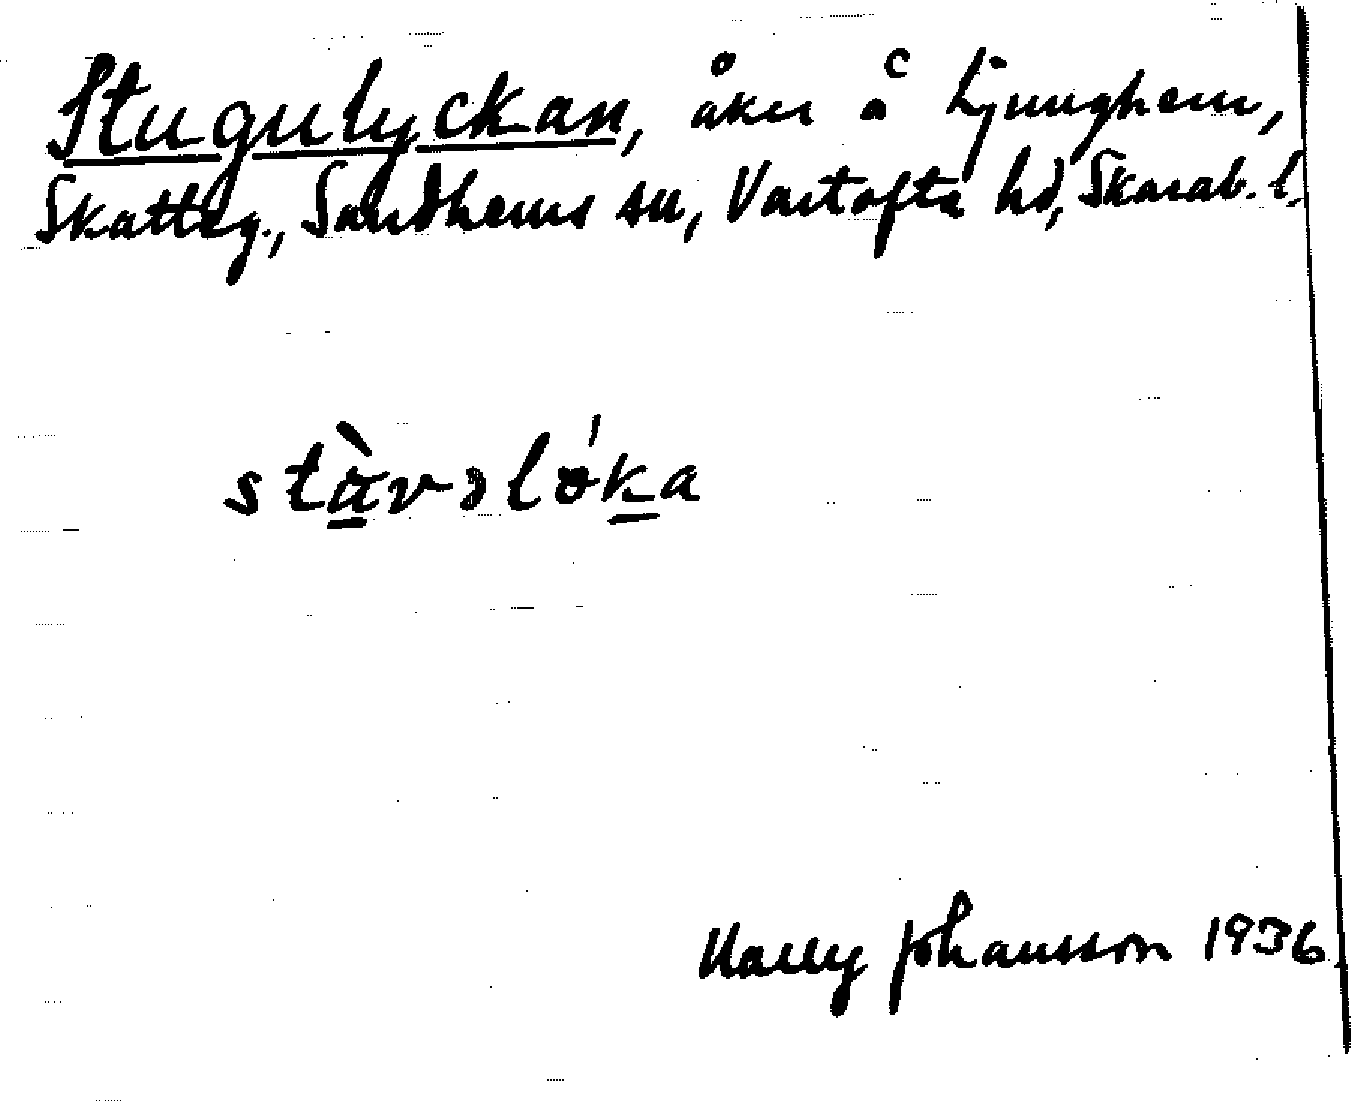 Stugulyckan, åker å Ljunghem,
Skatteg., Sandhems sn, Vartofta hd, Skarab. l.
stàvəló̵ka
Harry Johansson 1936